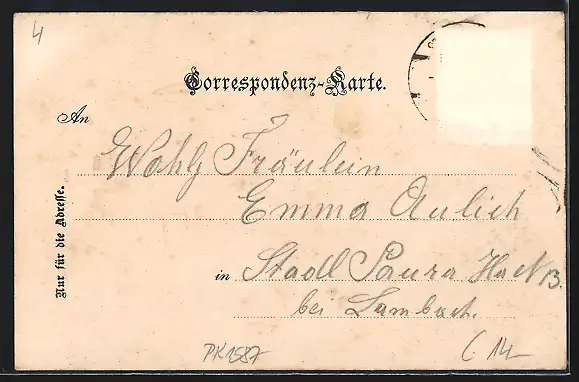 4
Correspondenz-Karte.
An
Wohlg Fräulein
Emma Aulich
Nur für die Adresse.
in Stadl Paura Hs N 13.
bei Lambach.
PK1587
C 14